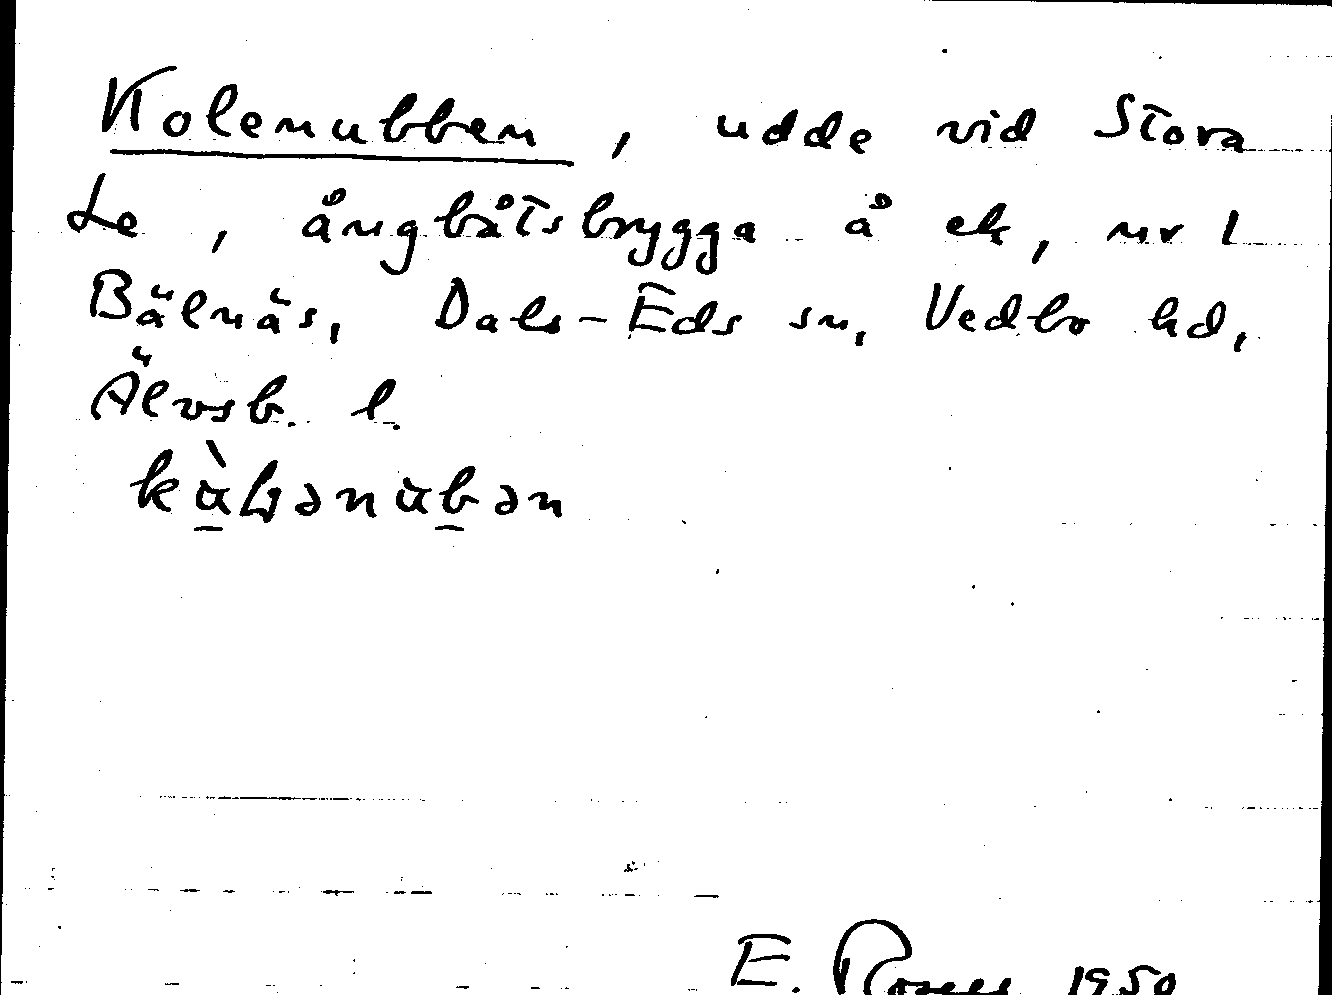 Kolenubben, udde vid Stora
Le, ångbåtsbrygga å ek, nr 1
Bälnäs, Dals-Eds sn, Vedbo hd,
Älvsb. l.
E. 1950